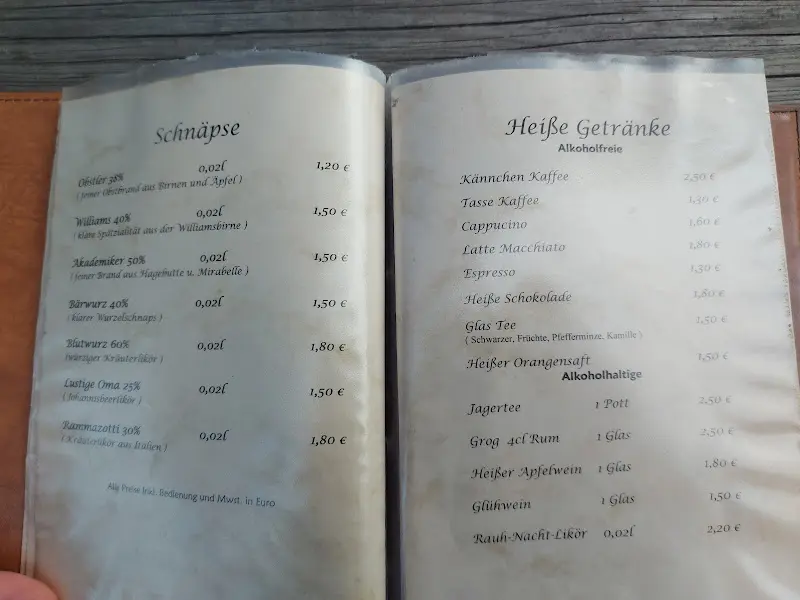 Schnäpse
Obstler 38% 0,02l 1,20 €
( feiner Obstbrand aus Birnen und Äpfel )
Williams 40% 0,02l 1,50 €
( klare Spezialität aus der Williamsbirne )
Akademiker 50% 0,02l 1,50 €
( feiner Brand aus Hagebutte u. Mirabelle )
Bärwurz 40% 0,02l 1,50 €
( klarer Wurzelschnaps )
Blutwurz 60% 0,02l 1,80 €
(würziger Kräuterlikör )
Lustige Oma 25% 0,02l 1,50 €
( Johannisbeerlikör )
Rammazotti 30% 0,02l 1,80 €
( Kräuterlikör aus Italien )
Alle Preise inkl. Bedienung und Mwst. in Euro
Heiße Getränke
Alkoholfreie
Kännchen Kaffee 2,50 €
Tasse Kaffee 1,30 €
Cappucino 1,60 €
Latte Macchiato 1,80 €
Espresso 1,30 €
Heiße Schokolade 1,80 €
Glas Tee 1,50 €
( Schwarzer, Früchte, Pfefferminze, Kamille )
Heißer Orangensaft 1,50 €
Alkoholhaltige
Jagertee 1 Pott 2,50 €
Grog 4cl Rum 1 Glas 2,50 €
Heißer Apfelwein 1 Glas 1,80 €
Glühwein 1 Glas 1,50 €
Rauh-Nacht-Likör 0,02l 2,20 €